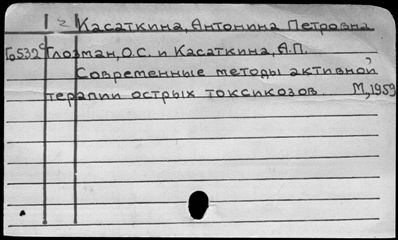 2 Касаткина, Антонина Петровна
Глозман, О.С. и Касаткина, А.П.
Современные методы активной
терапии острых токсикозов. М., 1959